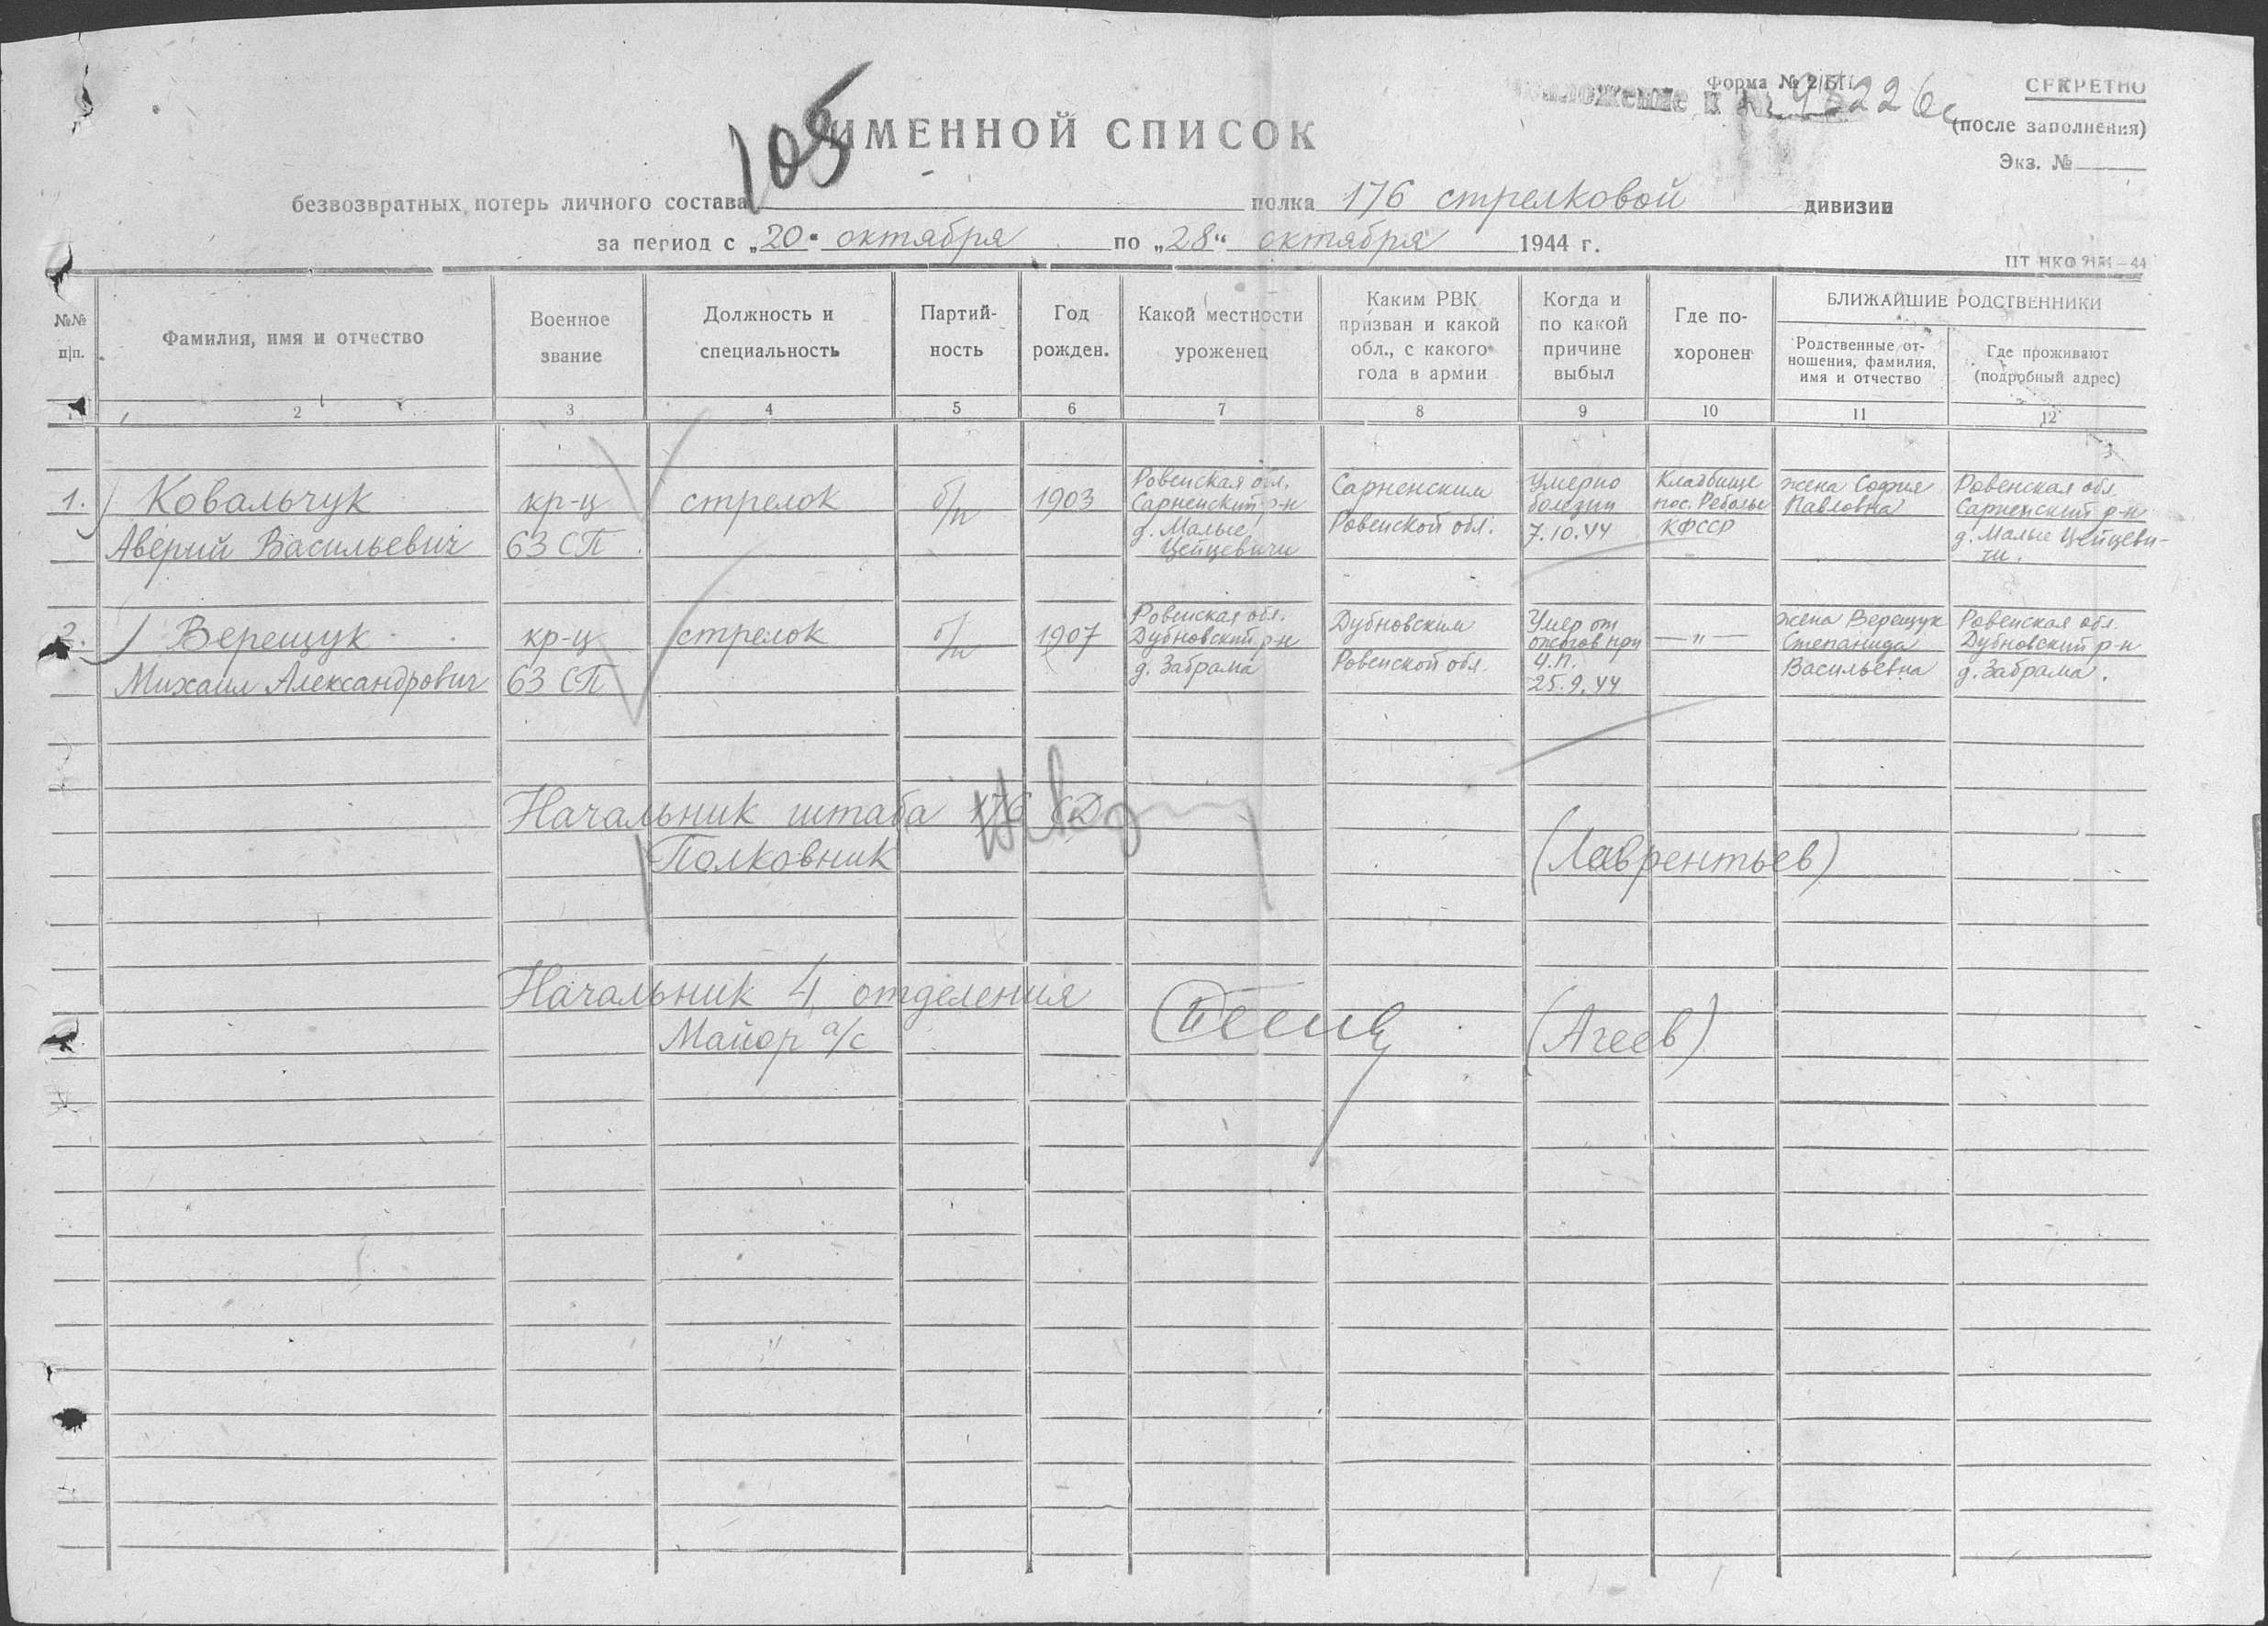 Форма № 2/БП
СЕКРЕТНО
Приложение к № 47226с
(после заполнения)
105
ИМЕННОЙ СПИСОК
Экз. №
безвозвратных потерь личного состава полка 176 стрелковой дивизии
за период с „20“ октября по „28“ октября 1944 г.
№№ п|п.
Фамилия, имя и отчество
Военное звание
Должность и специальность
Партий-
ность
Год рожден.
Какой местности уроженец
Каким РВК
призван и какой
обл., с какого
года в армии
Когда и
по какой
причине
выбыл
Где по-
хоронен
БЛИЖАЙШИЕ РОДСТВЕННИКИ
Родственные от-
ношения, фамилия,
имя и отчество
Где проживают
(подробный адрес)
2 3 4 5 6 7 8 9 10 11 12
1. Ковальчук
Аверий Васильевич
кр-ц
63 СП
стрелок
б/п
1903
Ровенская обл.
Сарненский р-н
д. Малые
Цейцевичи
Сарненским
Ровенской обл.
Умер по
болезни
7.10.44
Кладбище
пос. Реболы
КФССР
жена София
Павловна
Ровенская обл.
Сарненский р-н
д. Малые Цейцеви-
чи.
2. Верещук
Михаил Александрович
кр-ц
63 СП
стрелок
б/п
1907
Ровенская обл.
Дубновский р-н
д. Забрама
Дубновским
Ровенской обл.
Умер от
ожогов при
Ч.П.
25.9.44
— " —
жена Верещук
Степанида
Васильевна
Ровенская обл.
Дубновский р-н
д. Забрама.
Начальник штаба 176 СД
Полковник (Лаврентьев)
Начальник 4 отделения
Майор а/с (Агеев)